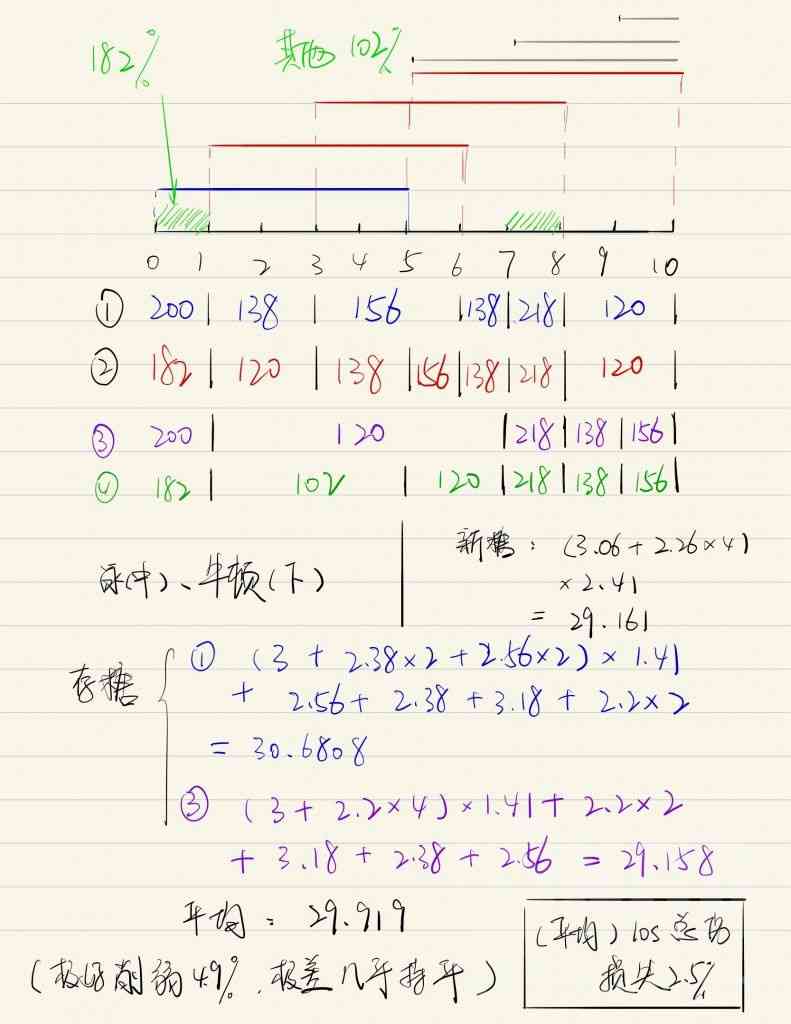 182%
其他 102%
0 1 2 3 4 5 6 7 8 9 10
① 200 | 138 | 156 | 138 | 218 | 120 |
② 182 | 120 | 138 | 156 | 138 | 218 | 120 |
③ 200 | 120 | 218 | 138 | 156 |
④ 182 | 102 | 120 | 218 | 138 | 156 |
(中)、牛顿(下)
新糖: (3.06 + 2.26×4)
× 2.41
= 29.161
存糖
① (3 + 2.38×2 + 2.56×2) × 1.41
+ 2.56 + 2.38 + 3.18 + 2.2×2
= 30.6808
③ (3 + 2.2×4) × 1.41 + 2.2×2
+ 3.18 + 2.38 + 2.56 = 29.158
平均: 29.919
(极好削弱 4.9%, 极差几乎持平)
(平均) 10s 总伤
损失 2.5%